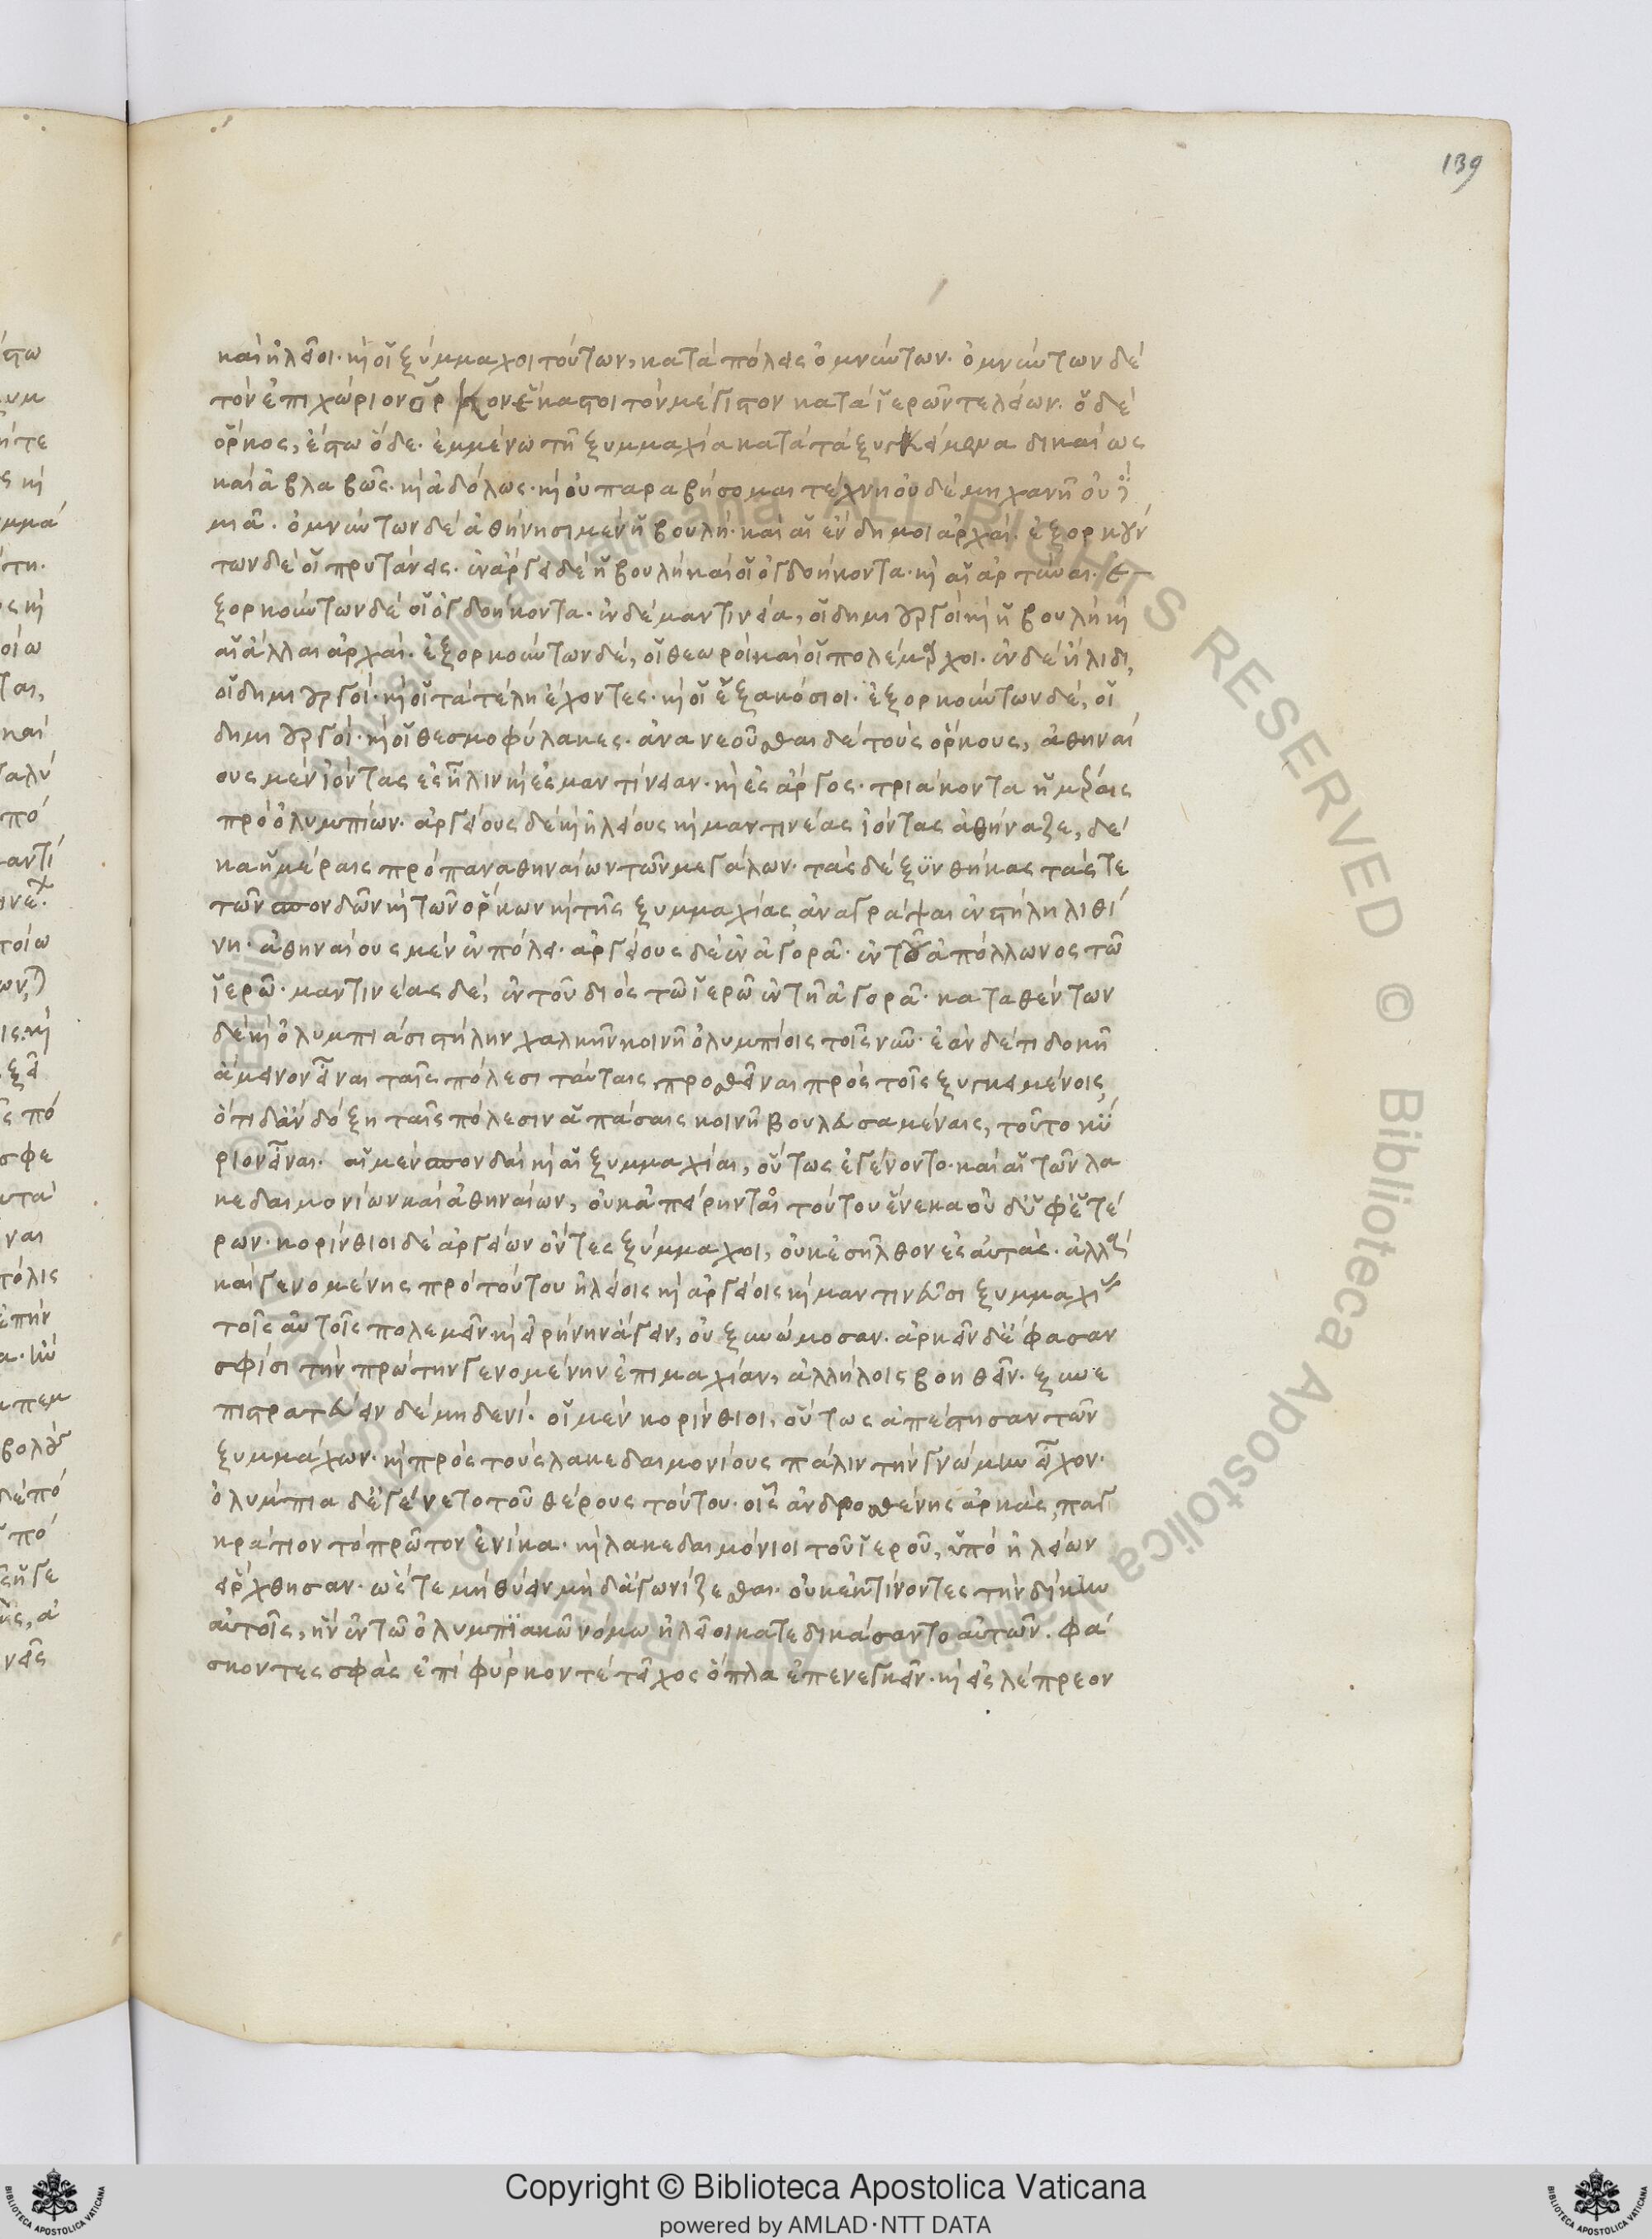 139
καὶ ἠλεῖοι· καὶ οἱ ξύμμαχοι τούτων, κατὰ πόλεις ὀμνύντων· ὀμνύντων δὲ
τὸν ἐπιχώριον ὅρκον ἕκαστοι τὸν μέγιστον κατὰ ἱερῶν τελείων· ὁ δὲ
ὅρκος, ἔστω ὅδε· ἐμμένω τῆ ξυμμαχία κατὰ τὰ ξυγκείμενα δικαίως
καὶ ἀβλαβῶς· καὶ ἀδόλως· καὶ οὐ παραβήσομαι τέχνη οὐδὲ μηχανῆ οὐδε
μιᾶ· ὀμνύντων δὲ ἀθήνησι μὲν ἡ βουλὴ· καὶ αἱ ἔνδημοι ἀρχαί· ἐξορκούν
των δὲ οἱ πρυτάνεις· ἐν ἄργει δὲ ἡ βουλὴ καὶ οἱ ὀγδοήκοντα· καὶ αἱ ἀρτύναι· ἐ
ξορκούντων δὲ οἱ ὀγδοήκοντα· ἐν δὲ μαντινεία, οἱ δημιουργοὶ καὶ ἡ βουλὴ καὶ
αἱ ἄλλαι ἀρχαί· ἐξορκούντων δὲ, οἱ θεωροὶ καὶ οἱ πολέμαρχοι· ἐν δὲ ἤλιδι,
οἱ δημιουργοί· καὶ οἱ τὰ τέλη ἔχοντες· καὶ οἱ ἑξακόσιοι· ἐξορκούντων δὲ, οἱ
δημιουργοί· καὶ οἱ θεσμοφύλακες· ἀνανεοῦσθαι δὲ τοὺς ὅρκους, ἀθηναί
ους μὲν ἰόντας ἐς ἦλιν καὶ ἐς μαντίνειαν· καὶ ἐς ἄργος· τριάκοντα ἡμέραις
πρὸ ὀλυμπίων· ἀργείους δὲ καὶ ἠλείους καὶ μαντινέας ἰόντας ἀθήναζε, δέ
κα ἡμέραις πρὸ παναθηναίων τῶν μεγάλων· τὰς δὲ ξυνθήκας τάς τε
τῶν σπονδῶν καὶ τῶν ὅρκων καὶ τῆς ξυμμαχίας ἀναγράψαι ἐν στήλη λιθί
νη· ἀθηναίους μὲν ἐν πόλει· ἀργείους δὲ ἐν ἀγορᾶ· ἐν τοῦ ἀπόλλωνος τῶ
ἱερῶ· μαντινέας δὲ, ἐν τοῦ διὸς τῶ ἱερῶ ἐν τῆ ἀγορᾶ· καταθέντων
δὲ καὶ ὀλυμπιάσι στήλην χαλκῆν κοινῆ ὀλυμπίοις τοῖς νῦν· ἐὰν δέ τι δοκῆ
ἄμεινον εἶναι ταῖς πόλεσι ταύταις, προσθεῖναι πρὸς τοῖς ξυγκειμένοις,
ὅτι δ' ἂν δόξη ταῖς πόλεσιν ἁπάσαις κοινῆ βουλευσαμέναις, τοῦτο κύ
ριον εἶναι· αἱ μὲν σπονδαὶ καὶ αἱ ξυμμαχίαι, οὕτως ἐγένοντο· καὶ αἱ τῶν λα
κεδαιμονίων καὶ ἀθηναίων, οὐκ ἀπείρηνται τούτου ἕνεκα οὐδ' ὑφ' ἑτέ
ρων· κορίνθιοι δὲ ἀργείων ὄντες ξύμμαχοι, οὐκ ἐσῆλθον ἐς αὐτάς· ἀλλὰ
καὶ γενομένης πρὸ τούτου ἠλείοις καὶ ἀργείοις καὶ μαντινεῦσι ξυμμαχίας
τοῖς αὐτοῖς πολεμεῖν καὶ εἰρήνην ἄγειν, οὐ ξυνώμοσαν· ἀρκεῖν δ' ἔφασαν
σφίσι τὴν πρώτην γενομένην ἐπιμαχίαν, ἀλλήλοις βοηθεῖν· ξυνε
πιστρατεύειν δὲ μηδενί· οἱ μὲν κορίνθιοι, οὕτως ἀπέστησαν τῶν
ξυμμάχων· καὶ πρὸς τοὺς λακεδαιμονίους πάλιν τὴν γνώμην εἶχον·
ὀλύμπια δ' ἐγένετο τοῦ θέρους τούτου· οἷς ἀνδροσθένης ἀρκὰς, παγ
κράτιον τὸ πρῶτον ἐνίκα· καὶ λακεδαιμόνιοι τοῦ ἱεροῦ, ὑπὸ ἠλείων
εἴρχθησαν· ὥστε μὴ θύειν μὴ δ' ἀγωνίζεσθαι· οὐκ ἐκτίνοντες τὴν δίκην
αὐτοῖς, ἣν ἐν τῶ ὀλυμπιακῶ νόμω ἠλεῖοι κατεδικάσαντο αὐτῶν· φά
σκοντες σφὰς ἐπὶ φύρκον τὲ τεῖχος ὅπλα ἐπενεγκεῖν· καὶ ἐς λέπρεον
Copyright © Biblioteca Apostolica Vaticana
powered by AMLAD·NTT DATA